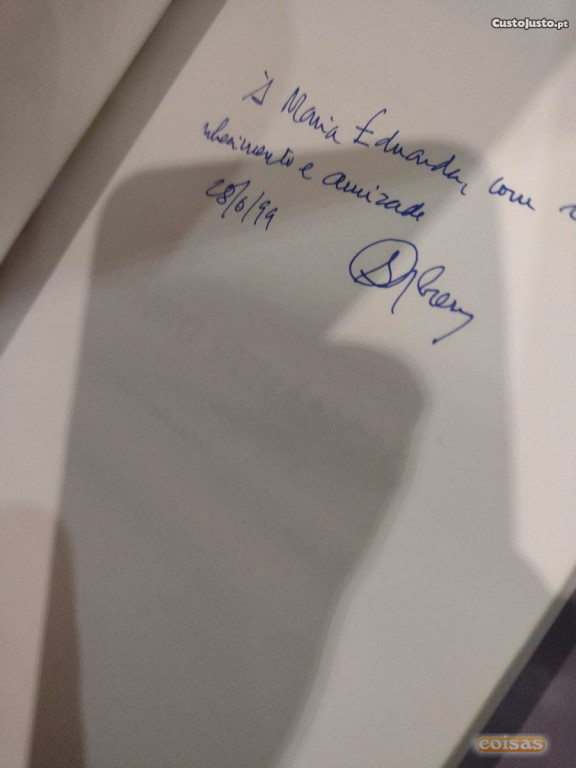 CustoJusto.pt
À Maria Eduarda, com
e amizade
28/6/99
coisas